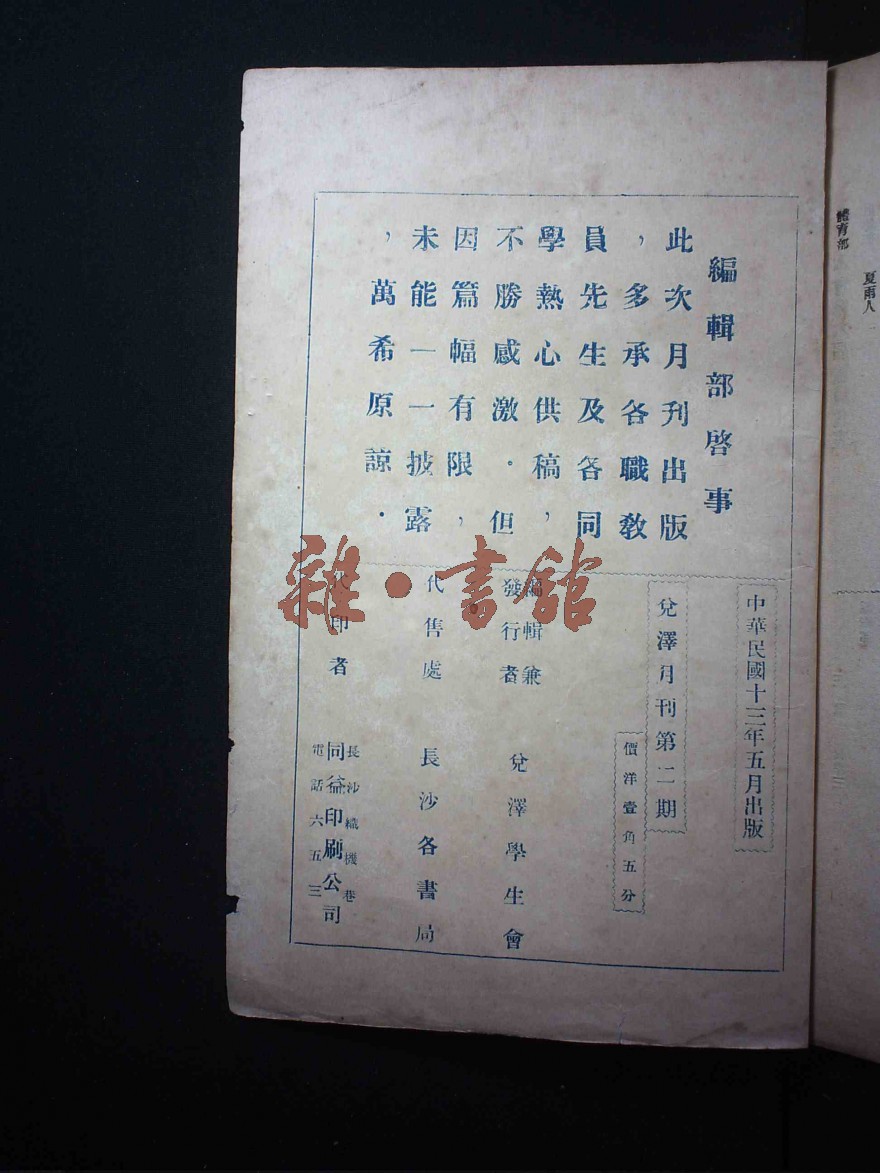 體育部
夏雨人
編輯部啓事
此次月刊出版
，多承各職教
員先生及各同
學熱心供稿，
不勝感激．但
因篇幅有限，
未能一一披露
，萬希原諒．
中華民國十三年五月出版
兌澤月刊第二期
價洋壹角五分
編輯兼
發行者
兌澤學生會
代售處
長沙各書局
代印者
長沙織機巷
同益印刷公司
電話六五三
雜・書館